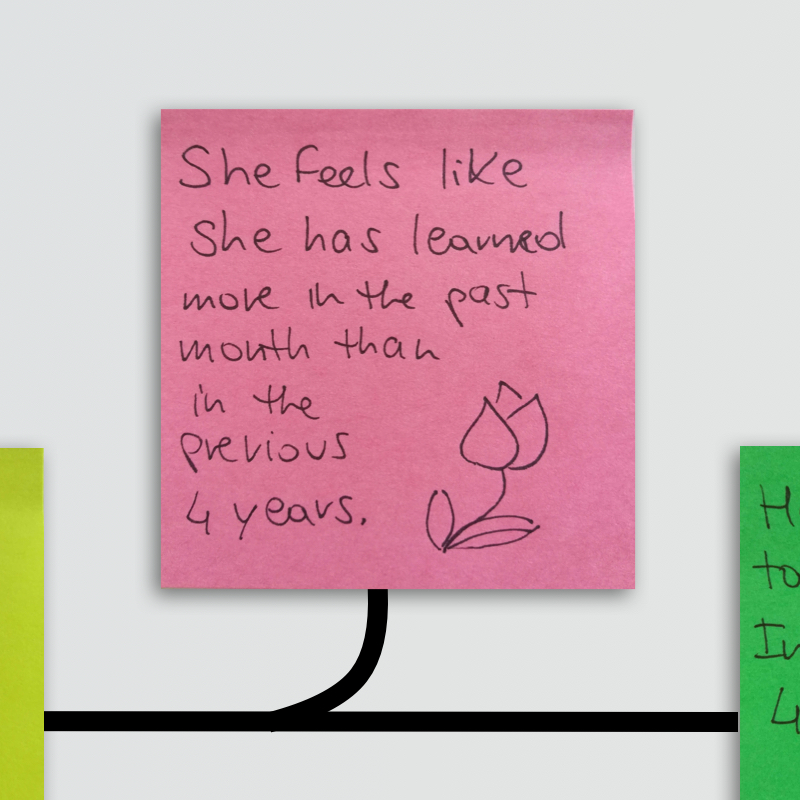 She feels like
she has learned
more in the past
month than
in the
previous
4 years.
H
to
4